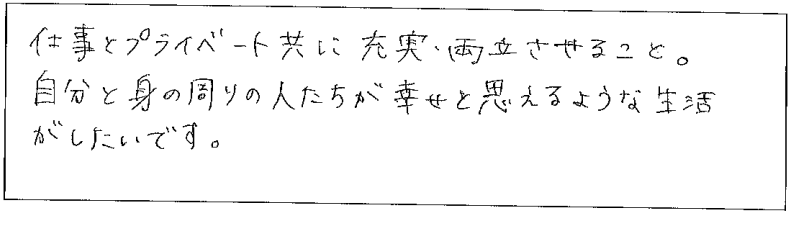 仕事とプライベート共に充実・両立させること。
自分と身の周りの人たちが幸せと思えるような生活
がしたいです。